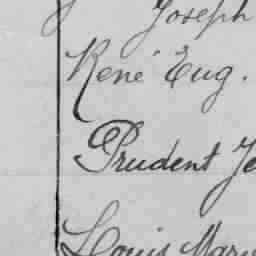 Joseph
René Eug.
Prudent Je
Louis Marie